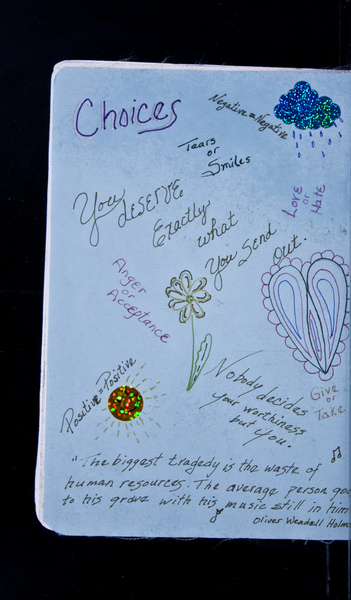 Choices
Negative = Negative
Tears
or
Smiles
Love
or
Hate
You DESERVE
Exactly
what
You Send
Out.
Anger
or
Acceptance
Positive = Positive
Nobody decides
your worthiness
but You.
Give
or
Take
"The biggest tragedy is the waste of
human resources. The average person goe
to his grave with his music still in him
Oliver Wendell Holm